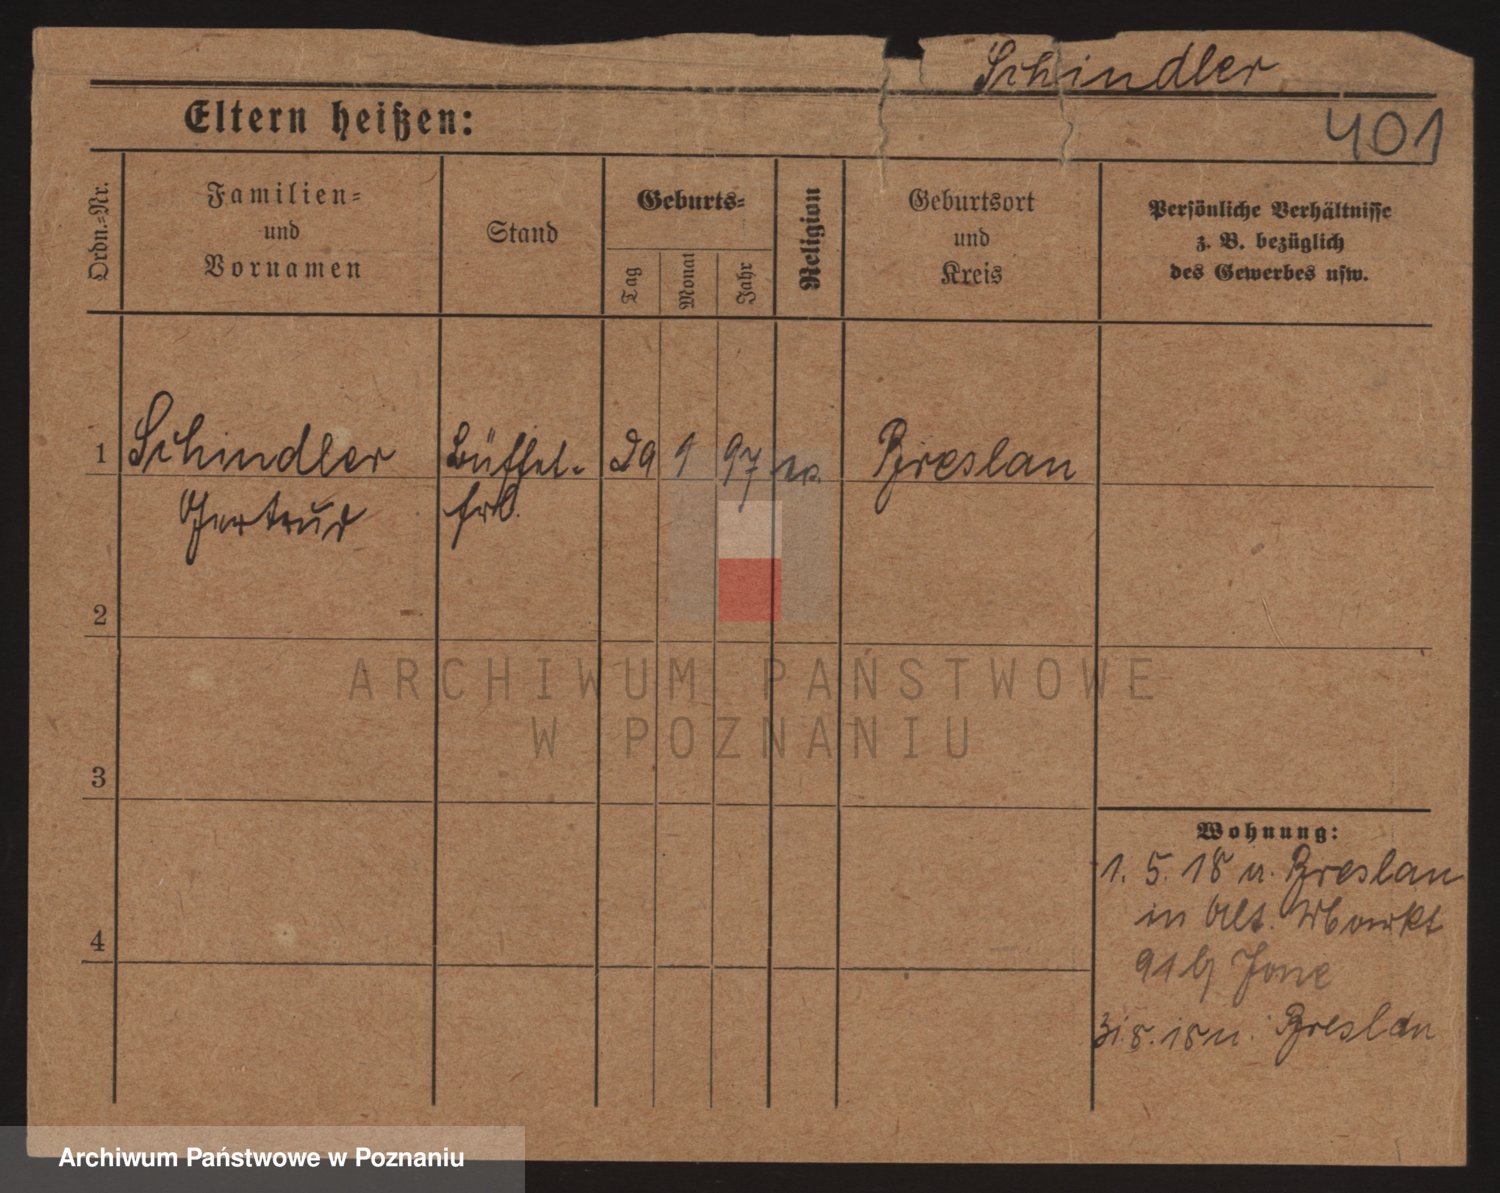 Schindler
Eltern heißen:
401
Ordn.=Nr.
Familien=
und
Vornamen
Stand
Geburts=
Tag
Monat
Jahr
Religion
Geburtsort
und
Kreis
Persönliche Verhältnisse
z. B. bezüglich
des Gewerbes usw.
1 Schindler Büffet= 29 1 97 Breslau
Gertrud frl.
2
3
4
Wohnung:
1. 5. 18 v. Breslau
in Alt. Markt
91 b/
31.8.18 n. Breslau
ARCHIWUM PAŃSTWOWE
W POZNANIU
Archiwum Państwowe w Poznaniu